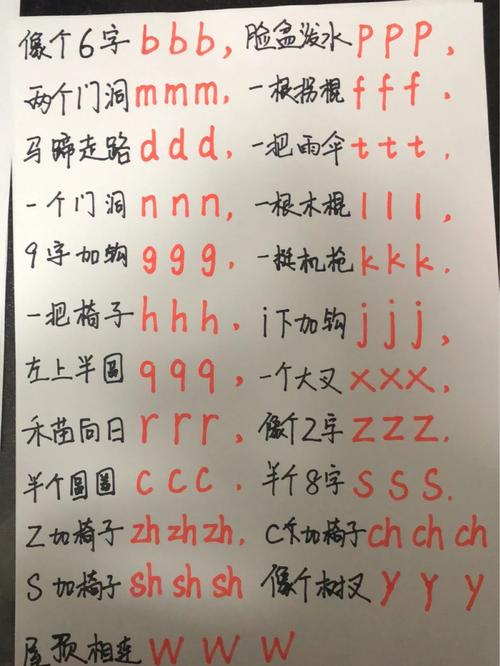 像个6字 b b b, 脸盆泼水 p p p,
两个门洞 m m m, 一根拐棍 f f f.
马蹄走路 d d d, 一把雨伞 t t t,
一个门洞 n n n, 一根木棍 l l l,
9字加钩 g g g. 一挺机枪 k k k.
一把椅子 h h h, i下加钩 j j j,
左上半圆 q q q, 一个大叉 x x x,
禾苗向日 r r r, 像个Z字 z z z.
半个圆圈 c c c. 半个8字 s s s.
Z加椅子 zh zh zh. C加椅子 ch ch ch
S加椅子 sh sh sh 像个树杈 y y y
屋顶相连 w w w